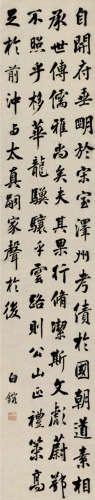 自開府垂明於宗室澤州考績於國朝道素相
承世傳儒雅尚矣夫其果行脩潔斯文彪蔚鄂
不照乎棣華龍驥驤乎雲路則公山正禮策高
足於前冲与太真嗣家聲於後
白鎔